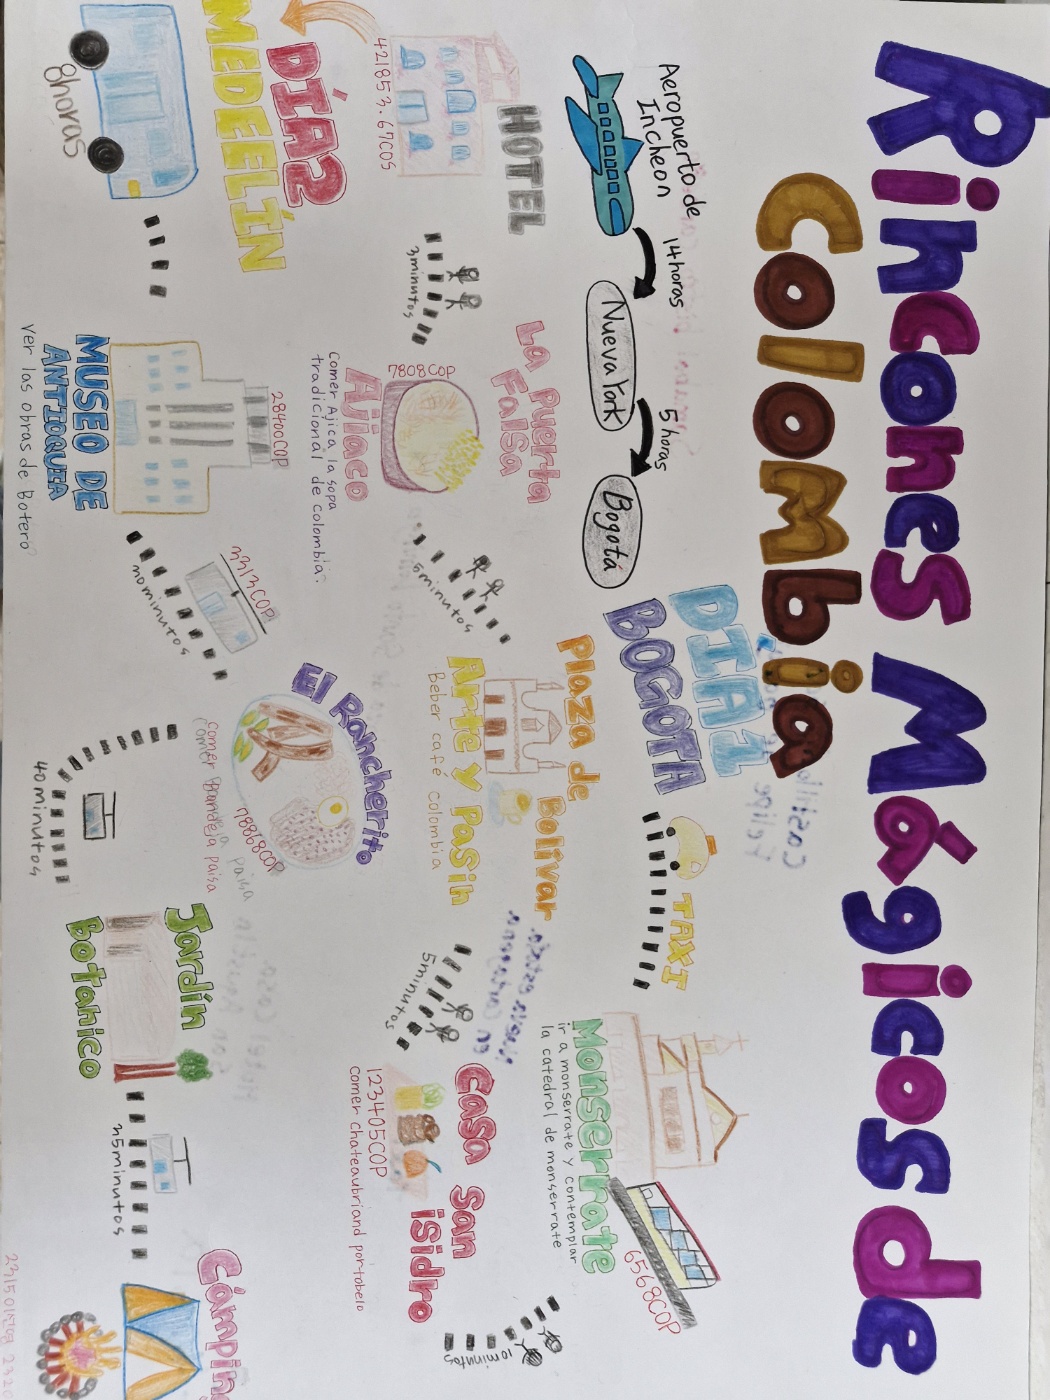 Rincones Mágicos de
Colombia
Aeropuerto de
Incheon
14horas
Nueva York
5 horas
Bogotá
DIA1
BOGOTA
TAXI
MONSERRATE
ir a monserrate y contemplar
la catedral de monserrate
6568COP
10minutos
CASA SAN
ISIDRO
123405COP
comer chateaubriand portobelo
5minutos
Plaza de Bolívar
Arte y Pasin
Beber café colombia
5minutos
La Puerta
Falsa
7808COP
Ajiaco
comer Ajica la sopa
tradicional de colombia.
3minutos
HOTEL
421853.67COS
DÍA2
MEDELÍN
8horas
28400COP
MUSEO DE
ANTIOQUIA
ver las obras de Botero
3313COP
El Rancherito
78868COP
comer Bandeja paisa
40minutos
Jardín
botanico
25minutos
Cámping